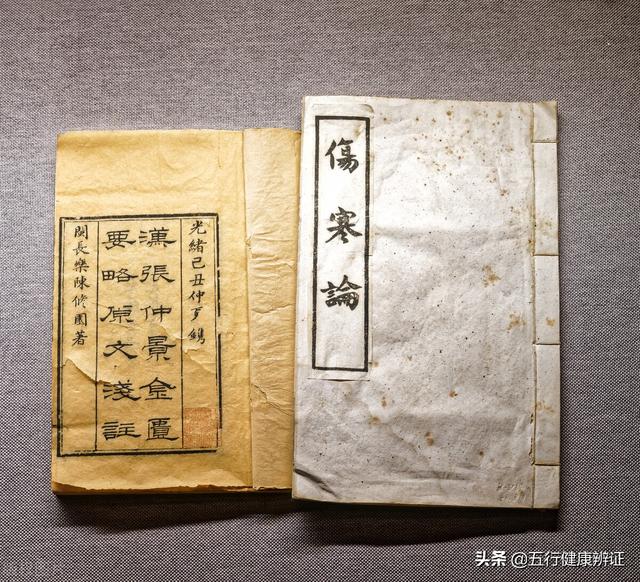 光緒己丑仲夏鐫
漢張仲景金匱
要略原文淺註
閩長樂陳修園著
傷寒論
头条 @五行健康辨证